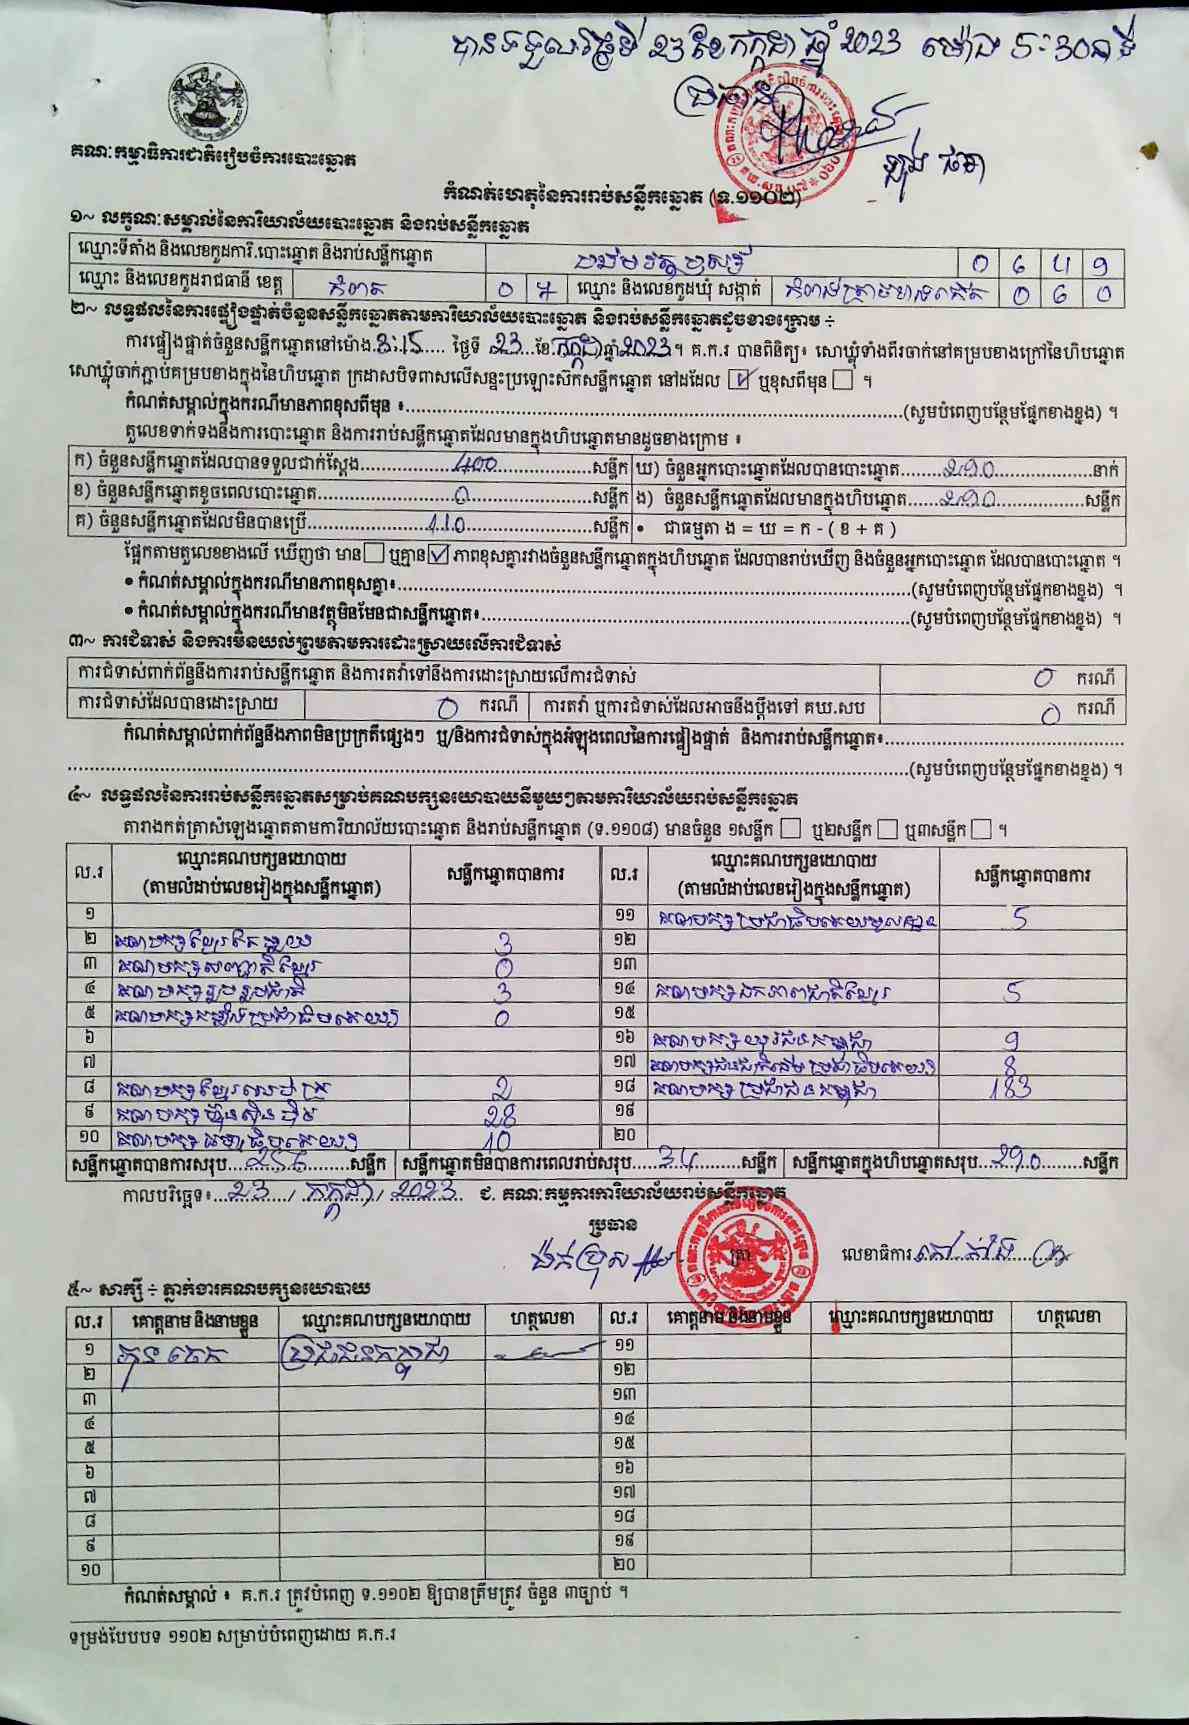 បានទទួលថ្ងៃទី 23 ខែកក្កដា ឆ្នាំ 2023 ម៉ោង 5:30នាទី
ប្រធាន
គណៈកម្មាធិការជាតិរៀបចំការបោះឆ្នោត
កំណត់ហេតុនៃការរាប់សន្លឹកឆ្នោត (ទ.១១០២)
១~ លក្ខណៈសម្គាល់នៃការិយាល័យបោះឆ្នោត និងរាប់សន្លឹកឆ្នោត
ឈ្មោះទីតាំង និងលេខកូដការី.បោះឆ្នោត និងរាប់សន្លឹកឆ្នោត 0 6 4 9
ឈ្មោះ និងលេខកូដរាជធានី ខេត្ត កំពត 0 7 ឈ្មោះ និងលេខកូដឃុំ សង្កាត់ 0 6 0
២~ លទ្ធផលនៃការផ្ទៀងផ្ទាត់ចំនួនសន្លឹកឆ្នោតតាមការិយាល័យបោះឆ្នោត និងរាប់សន្លឹកឆ្នោតដូចខាងក្រោម ÷
ការផ្ទៀងផ្ទាត់ចំនួនសន្លឹកឆ្នោតនៅម៉ោង.3:15.... ថ្ងៃទី .23...ខែ.កក្កដា.ឆ្នាំ.2023.។ គ.ក.រ បានពិនិត្យ៖ សោឃ្លុំទាំងពីរចាក់នៅគម្របខាងក្រៅនៃហិបឆ្នោត
សោឃ្លុំចាក់ភ្ជាប់គម្របខាងក្នុងនៃហិបឆ្នោត ក្រដាសបិទពាសលើសន្ទះប្រឡោះស៊កសន្លឹកឆ្នោត នៅដដែល ☑ ឬខុសពីមុន ☐ ។
កំណត់សម្គាល់ក្នុងករណីមានភាពខុសពីមុន ៖..........(សូមបំពេញបន្ថែមផ្នែកខាងខ្នង) ។
តួលេខទាក់ទងនឹងការបោះឆ្នោត និងការរាប់សន្លឹកឆ្នោតដែលមានក្នុងហិបឆ្នោតមានដូចខាងក្រោម ៖
ក) ចំនួនសន្លឹកឆ្នោតដែលបានទទួលជាក់ស្តែង.....400.....សន្លឹក ឃ) ចំនួនអ្នកបោះឆ្នោតដែលបានបោះឆ្នោត.....290.....នាក់
ខ) ចំនួនសន្លឹកឆ្នោតខូចពេលបោះឆ្នោត.....0.....សន្លឹក ង) ចំនួនសន្លឹកឆ្នោតដែលមានក្នុងហិបឆ្នោត.....290.....សន្លឹក
គ) ចំនួនសន្លឹកឆ្នោតដែលមិនបានប្រើ.....110.....សន្លឹក • ជាធម្មតា ង = ឃ = ក - ( ខ + គ )
ផ្អែកតាមតួលេខខាងលើ ឃើញថា មាន ☐ ឬគ្មាន ☑ ភាពខុសគ្នារវាងចំនួនសន្លឹកឆ្នោតក្នុងហិបឆ្នោត ដែលបានរាប់ឃើញ និងចំនួនអ្នកបោះឆ្នោត ដែលបានបោះឆ្នោត ។
• កំណត់សម្គាល់ក្នុងករណីមានភាពខុសគ្នា៖..........(សូមបំពេញបន្ថែមផ្នែកខាងខ្នង) ។
• កំណត់សម្គាល់ក្នុងករណីមានវត្ថុមិនមែនជាសន្លឹកឆ្នោត៖..........(សូមបំពេញបន្ថែមផ្នែកខាងខ្នង) ។
៣~ ការជំទាស់ និងការមិនយល់ព្រមតាមការដោះស្រាយលើការជំទាស់
ការជំទាស់ពាក់ព័ន្ធនឹងការរាប់សន្លឹកឆ្នោត និងការតវ៉ាទៅនឹងការដោះស្រាយលើការជំទាស់ 0 ករណី
ការជំទាស់ដែលបានដោះស្រាយ 0 ករណី ការតវ៉ា ឬការជំទាស់ដែលអាចនឹងប្តឹងទៅ គឃ.សប 0 ករណី
កំណត់សម្គាល់ពាក់ព័ន្ធនឹងភាពមិនប្រក្រតីផ្សេងៗ ឬ/និងការជំទាស់ក្នុងអំឡុងពេលនៃការផ្ទៀងផ្ទាត់ និងការរាប់សន្លឹកឆ្នោត៖..........
..........(សូមបំពេញបន្ថែមផ្នែកខាងខ្នង) ។
៤~ លទ្ធផលនៃការរាប់សន្លឹកឆ្នោតសម្រាប់គណបក្សនយោបាយនីមួយៗតាមការិយាល័យរាប់សន្លឹកឆ្នោត
តារាងកត់ត្រាសំឡេងឆ្នោតតាមការិយាល័យបោះឆ្នោត និងរាប់សន្លឹកឆ្នោត (ទ.១១០៨) មានចំនួន ១សន្លឹក ☐ ឬ២សន្លឹក ☐ ឬ៣សន្លឹក ☐ ។
ល.រ ឈ្មោះគណបក្សនយោបាយ (តាមលំដាប់លេខរៀងក្នុងសន្លឹកឆ្នោត) សន្លឹកឆ្នោតបានការ ល.រ ឈ្មោះគណបក្សនយោបាយ (តាមលំដាប់លេខរៀងក្នុងសន្លឹកឆ្នោត) សន្លឹកឆ្នោតបានការ
១ ១១ គណបក្សប្រជាធិបតេយ្យមូលដ្ឋាន 5
២ គណបក្សខ្មែរតែមួយ 3 ១២
៣ គណបក្សសញ្ជាតិខ្មែរ 0 ១៣
៤ គណបក្សរួបរួមជាតិ 3 ១៤ គណបក្សឯកភាពជាតិខ្មែរ 5
៥ គណបក្សកម្លាំងប្រជាធិបតេយ្យ 0 ១៥
៦ ១៦ គណបក្សយុវជនកម្ពុជា 9
៧ ១៧ គណបក្សជនជាតិដើមប្រជាធិបតេយ្យ 8
៨ គណបក្សខ្មែរឈប់ក្រ 2 ១៨ គណបក្សប្រជាជនកម្ពុជា 183
៩ គណបក្សហ៊្វុនស៊ិនប៉ិច 28 ១៩
១០ គណបក្សធម្មាធិបតេយ្យ 10 ២០
សន្លឹកឆ្នោតបានការសរុប...256...សន្លឹក សន្លឹកឆ្នោតមិនបានការពេលរាប់សរុប.....34.....សន្លឹក សន្លឹកឆ្នោតក្នុងហិបឆ្នោតសរុប...290...សន្លឹក
កាលបរិច្ឆេទ៖...23.../ កក្កដា / 2023 ជ. គណៈកម្មការការិយាល័យរាប់សន្លឹកឆ្នោត
ប្រធាន
ត្រា លេខាធិការ
៥~ សាក្សី ÷ ភ្នាក់ងារគណបក្សនយោបាយ
ល.រ គោត្តនាម និងនាមខ្លួន ឈ្មោះគណបក្សនយោបាយ ហត្ថលេខា ល.រ គោត្តនាម និងនាមខ្លួន ឈ្មោះគណបក្សនយោបាយ ហត្ថលេខា
១ ប្រជាជនកម្ពុជា ១១
២ ១២
៣ ១៣
៤ ១៤
៥ ១៥
៦ ១៦
៧ ១៧
៨ ១៨
៩ ១៩
១០ ២០
កំណត់សម្គាល់ ៖ គ.ក.រ ត្រូវបំពេញ ទ.១១០២ ឱ្យបានត្រឹមត្រូវ ចំនួន ៣ច្បាប់ ។
ទម្រង់បែបបទ ១១០២ សម្រាប់បំពេញដោយ គ.ក.រ